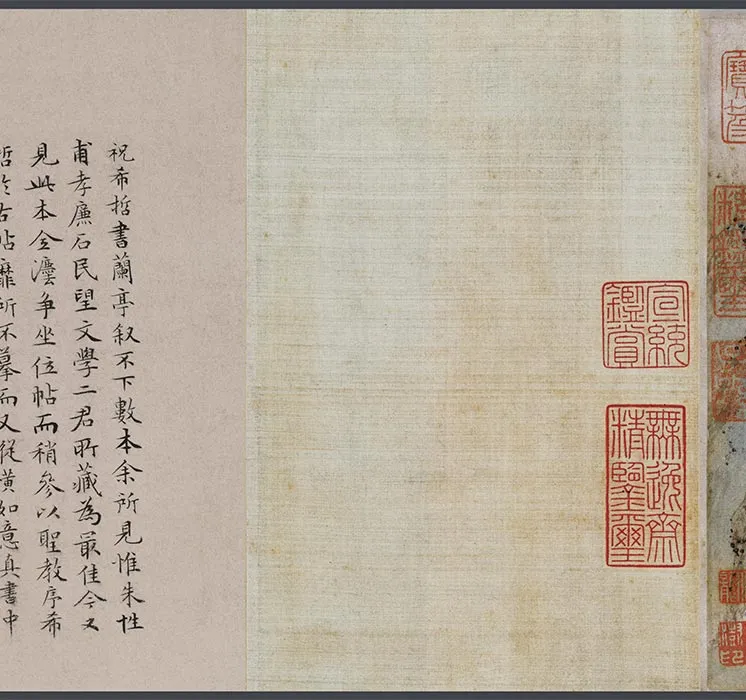 宣統
鑑賞
無逸齋
精鑒璽
祝希哲書蘭亭叙不下數本余所見惟朱性
甫孝廉石民望文學二君所藏為最佳今又
見此本全灋爭坐位帖而稍參以聖教序希
哲於古帖靡所不摹而又縱橫如意真書中